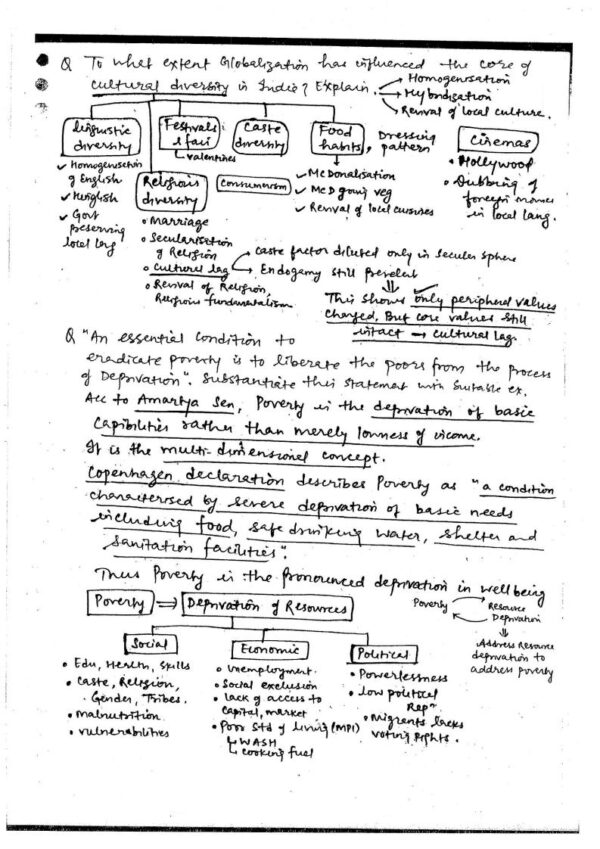 Q To what extent Globalization has influenced the core of
cultural diversity in India? Explain.
→ Homogenisation
→ Hybridisation
→ Revival of local culture.
linguistic diversity
✓ Homogenisation of English
✓ Hinglish
✓ Govt preserving local lang
Festivals & fair
↳ valentines
Religious diversity
• Marriage
• Secularisation of Religion
• Cultural lag
→ Caste factor diluted only in secular sphere
→ Endogamy still prevelent
• Revival of Religion, Religious fundamentalism
Caste diversity
Consumerism
Food habits, Dressing pattern
✓ McDonalisation
✓ McD going veg
✓ Revival of local cuisines
Cinemas
• Hollywood
• Dubbing of foreign movies in local lang.
⇓
This shows only peripheral values
changed. But core values still
intact → cultural lag.
Q "An essential condition to
eradicate poverty is to liberate the poors from the process
of Deprivation". Substantiate this statement with suitable ex.
Acc to Amartya Sen, Poverty is the deprivation of basic
Capibilities rather than merely lowness of income.
It is the multi-dimensional concept.
Copenhagen declaration describes Poverty as "a condition
characterised by severe deprivation of basic needs
including food, safe drinking water, shelter and
sanitation facilities".
Thus Poverty is the pronounced deprivation in well being
Poverty ⇒ Deprivation of Resources
Poverty
Resource Deprivation
⇓
Address Resource
deprivation to
address poverty
Social
• Edu, Health, Skills
• Caste, Religion,
Gender, Tribes.
• malnutrition
• vulnerabilities
Economic
• Unemployment.
• Social exclusion
• lack of access to
capital, market
• Poor Std of living (MPI)
↳ WASH
↳ cooking fuel
Political
• Powerlessness
• low political
Rep^n
• Migrants lacks
voting rights.